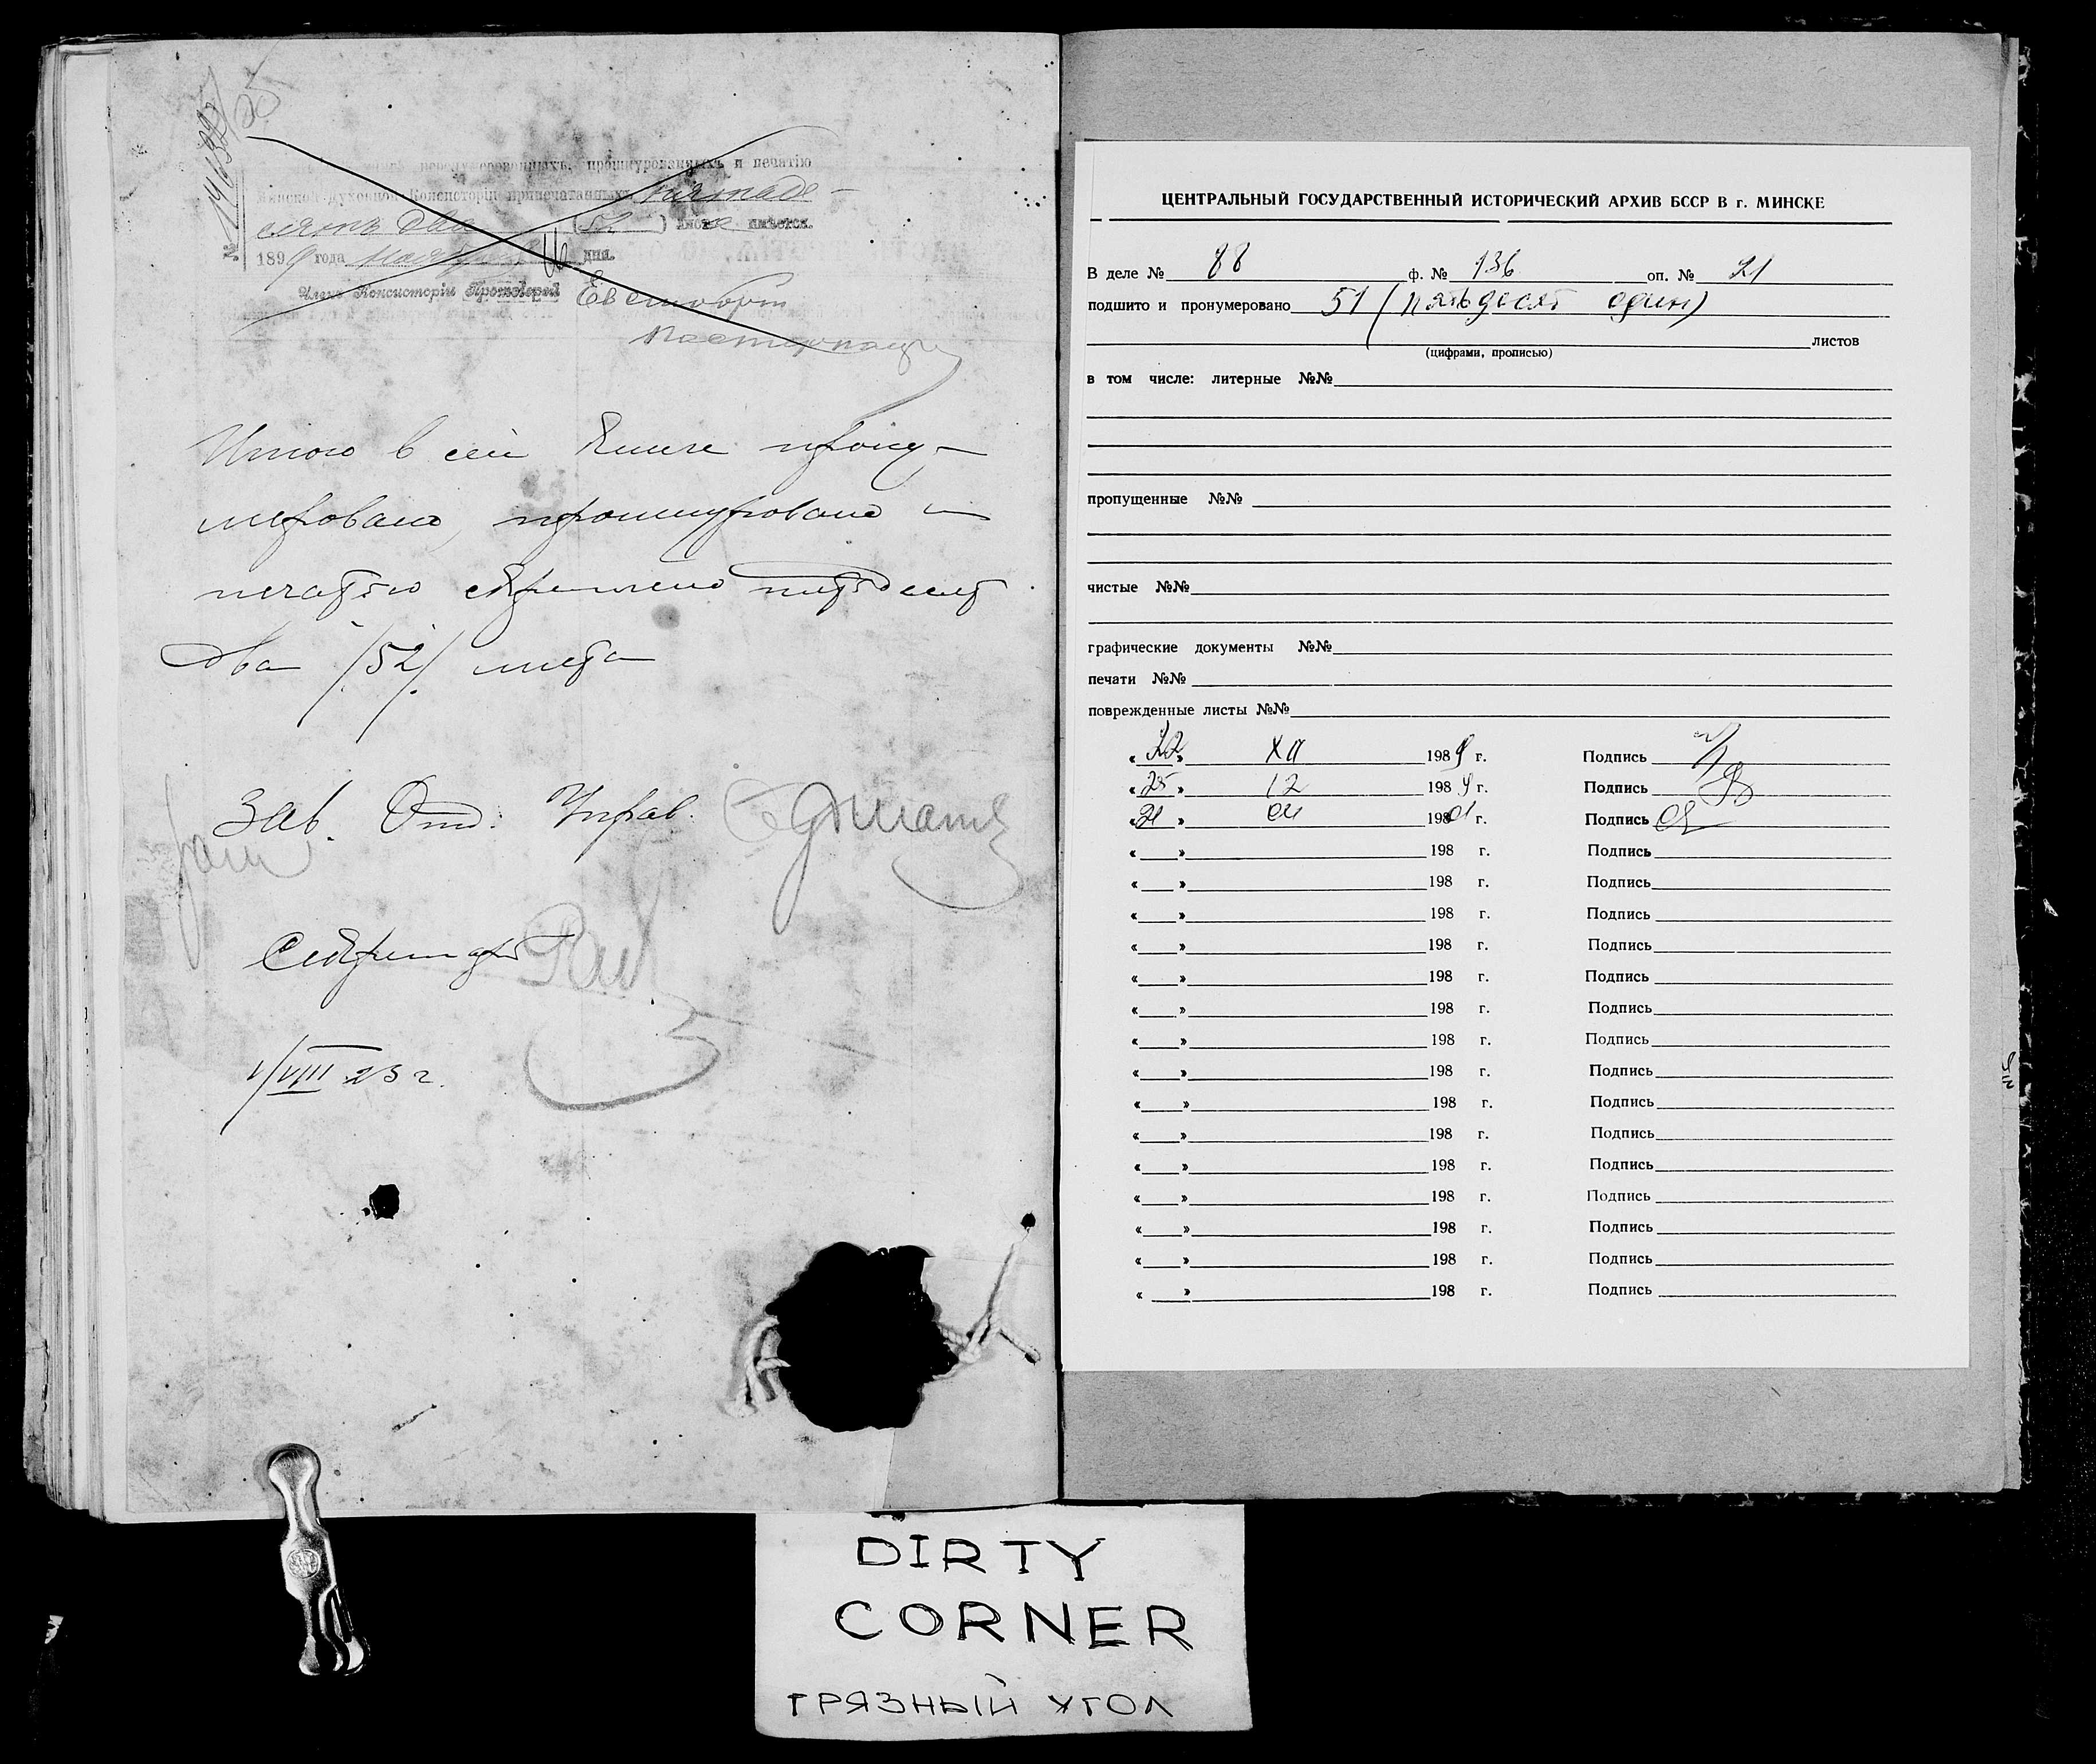 перенумерованныхъ, прошнурованныхъ и печатію
Минской Духовной Консисторіи припечатанныхъ пятьде-
сятъ два (52) листа имѣется.
1899 года Ноября 16 дня.
Членъ Консисторіи Протоіерей
Итого в сей книге прону-
меровано, прошнуровано и
печатью скреплено пятьдесят
два /52/ листа
Зав. Отд. Управ.
Секретарь
1/VIII 23 г.
ЦЕНТРАЛЬНЫЙ ГОСУДАРСТВЕННЫЙ ИСТОРИЧЕСКИЙ АРХИВ БССР В г. МИНСКЕ
В деле № 88 ф. № 136 оп. № 21
подшито и пронумеровано 51 (пятьдесят один)
листов
(цифрами, прописью)
в том числе: литерные №№
пропущенные №№
чистые №№
графические документы №№
печати №№
поврежденные листы №№
« 22 » XII 1989 г. Подпись
« 25 » 12 1989 г. Подпись
« 21 » 04 198 г. Подпись
« » 198 г. Подпись
« » 198 г. Подпись
« » 198 г. Подпись
« » 198 г. Подпись
« » 198 г. Подпись
« » 198 г. Подпись
« » 198 г. Подпись
« » 198 г. Подпись
« » 198 г. Подпись
« » 198 г. Подпись
« » 198 г. Подпись
« » 198 г. Подпись
« » 198 г. Подпись
« » 198 г. Подпись
« » 198 г. Подпись
DIRTY
CORNER
ГРЯЗНЫЙ УГОЛ